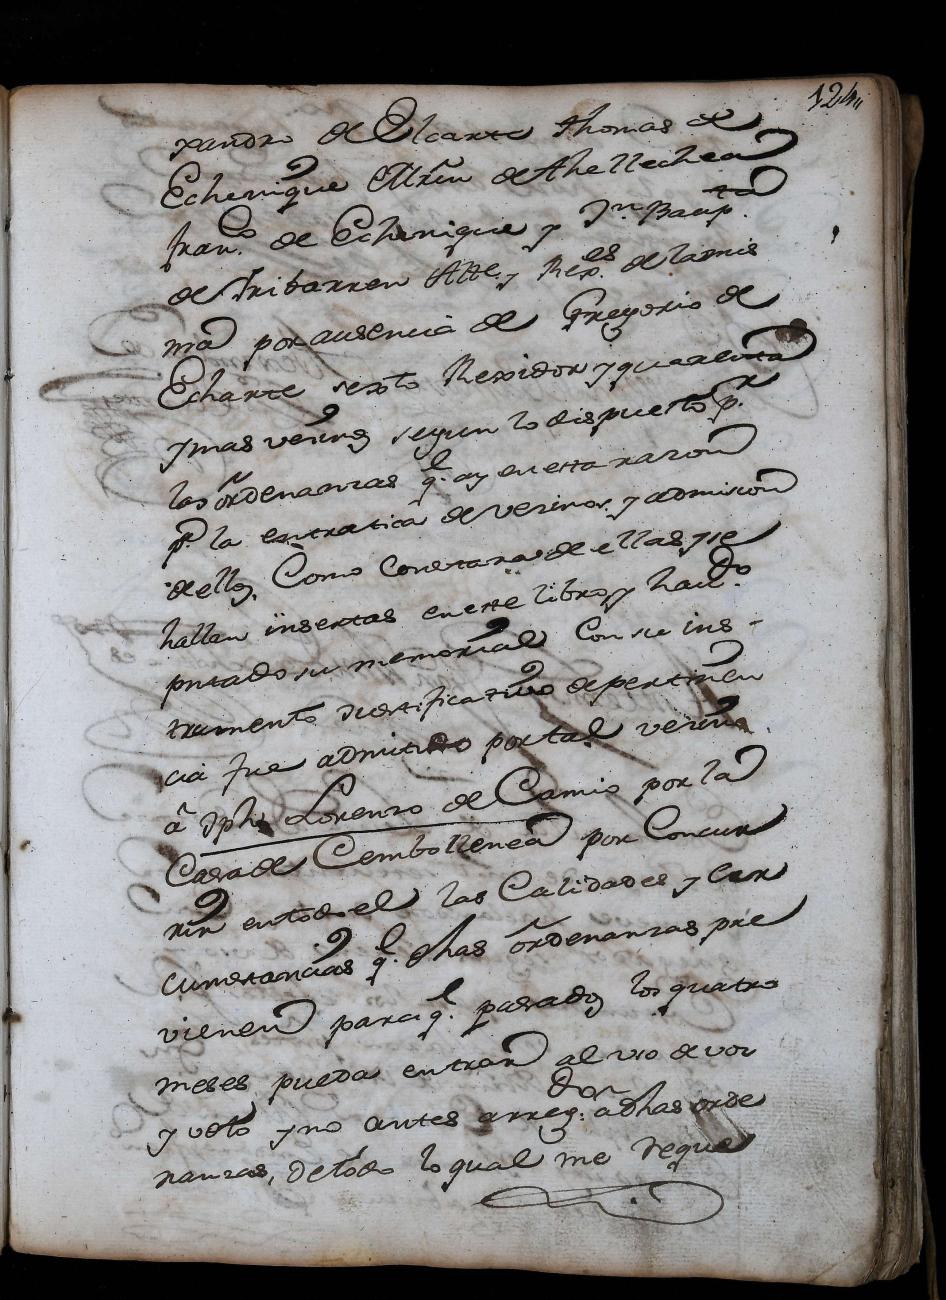 124
xandro de Elcarte Thomas de
Echenique Mrñ de Athellechea
fran.co de Echenique y Jn Baup.ta
de Iribarren Alle. y Rex.es de la mis
ma por ausencia de Gregorio de
Echarte sexto Rexidor y quarenta
y mas vecinos segun lo dispuesto pr
las ordenanzas q. ay en esta razon
pa la entratica de vecinos y admision
dellos, Como Constara de ellas y se
hallan insertas en este libro y havdo
prutado su memorial Con su ins-
trumento Justificativo de pertinen
cia fue admitido por tal vecino
â Jph Lorenzo de Camio por la
Casa de Cembollenea por Concur
rir en todo el las Calidades y Cir
cunstancias q. dhas ordenanzas pre
vienen para q. pasados los quatro
meses pueda entrar al uso de voz
y voto y no antes arreg.dor a dhas orde
nanzas, de todo lo qual me reque